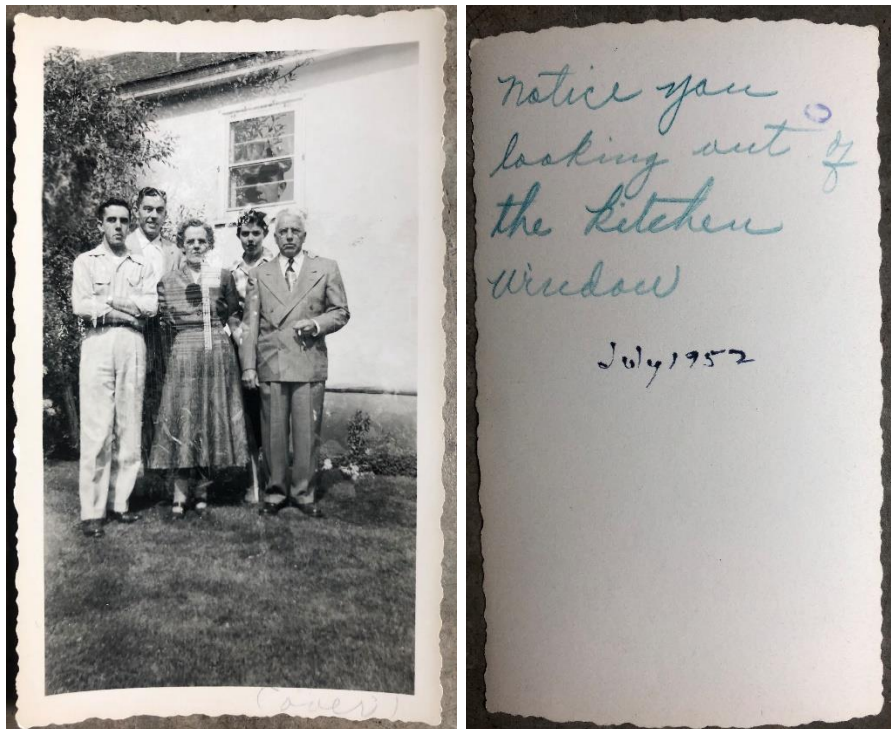 (over)
Notice you
looking out of
the kitchen
window
July 1952